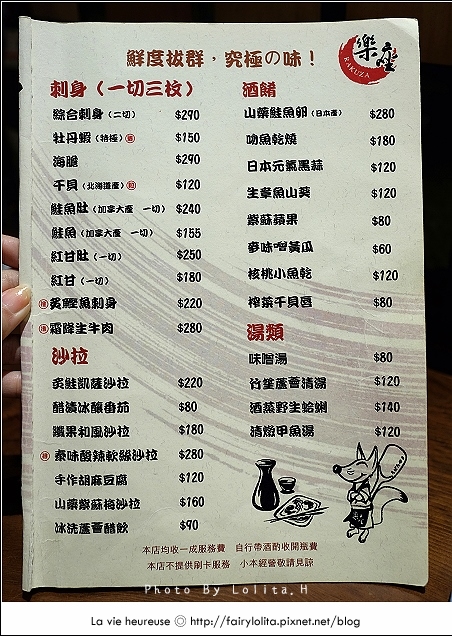 鮮度拔群，究極の味！
樂座
RAKUZA
刺身（一切三枚）
綜合刺身（二切） $290
牡丹蝦（特極） $150
海膽 $290
干貝（北海道產） $120
鮭魚肚（加拿大產 一切） $240
鮭魚（加拿大產 一切） $155
紅甘肚（一切） $250
紅甘（一切） $180
炙鰹魚刺身 $220
霜降生牛肉 $280
沙拉
炙鮭凱薩沙拉 $220
醋漬冰釀番茄 $80
鑶果和風沙拉 $180
泰味酸辣軟絲沙拉 $280
手作胡麻豆腐 $120
山藥紫蘇梅沙拉 $160
冰洗蘆薈醋飲 $90
酒餚
山藥鮭魚卵（日本產） $280
吻魚乾燒 $180
日本元氣黑蒜 $120
生章魚山葵 $120
紫蘇蘋果 $80
麥味噌黃瓜 $60
核桃小魚乾 $120
榨菜干貝唇 $80
湯類
味噌湯 $80
竹笙蘆薈清湯 $120
酒蒸野生蛤蜊 $140
清燉甲魚湯 $120
本店均收一成服務費 自行帶酒酌收開瓶費
本店不提供刷卡服務 小本經營敬請見諒
Photo By Lolita.H
La vie heureuse ◎ http://fairylolita.pixnet.net/blog